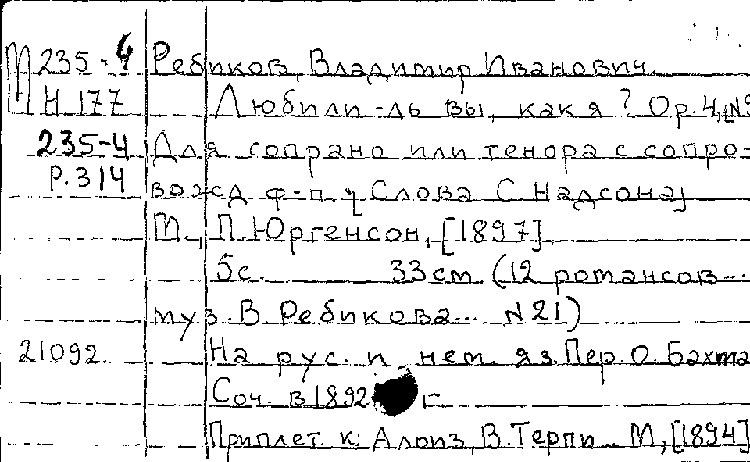 М 235-4 Ребиков, Владимир Иванович.
Н 177 Любили-ль вы, как я? Op. 4, [N
235-4 Для сопрано или тенора с сопро-
Р. 314 вожд ф-п. Слова С. Надсона]
М., П. Юргенсон, [1897]
5с. 33см. (12 романсов...
муз. В. Ребикова... N 21)
21092. На рус. и нем. яз. Пер. О. Бахта
Соч. в 1892 г.
Приплет. к: Алоиз, В. Терпи... М, [1894]